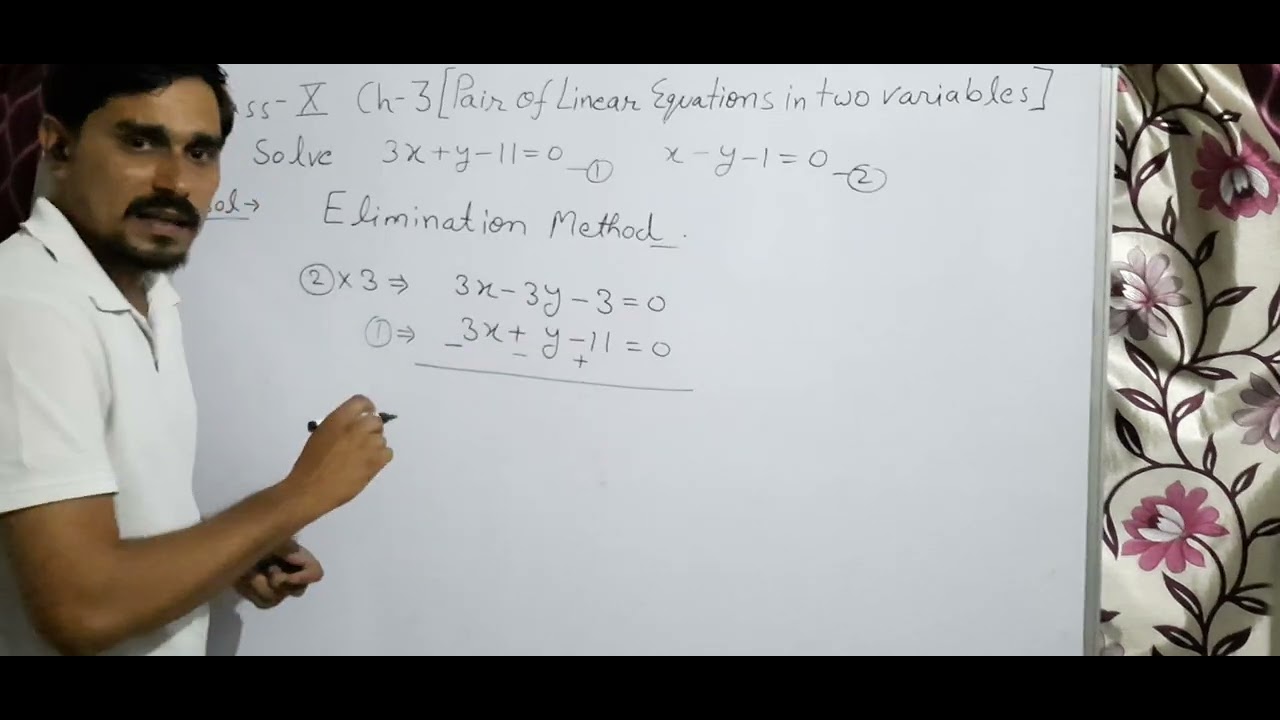 ss-X Ch-3[Pair of Linear Equations in two variables]
Solve 3x+y-11=0 -① x-y-1=0 -②
Sol→ Elimination Method.
②×3⇒ 3x-3y-3=0
①⇒ 3x+ y-11=0
- - +